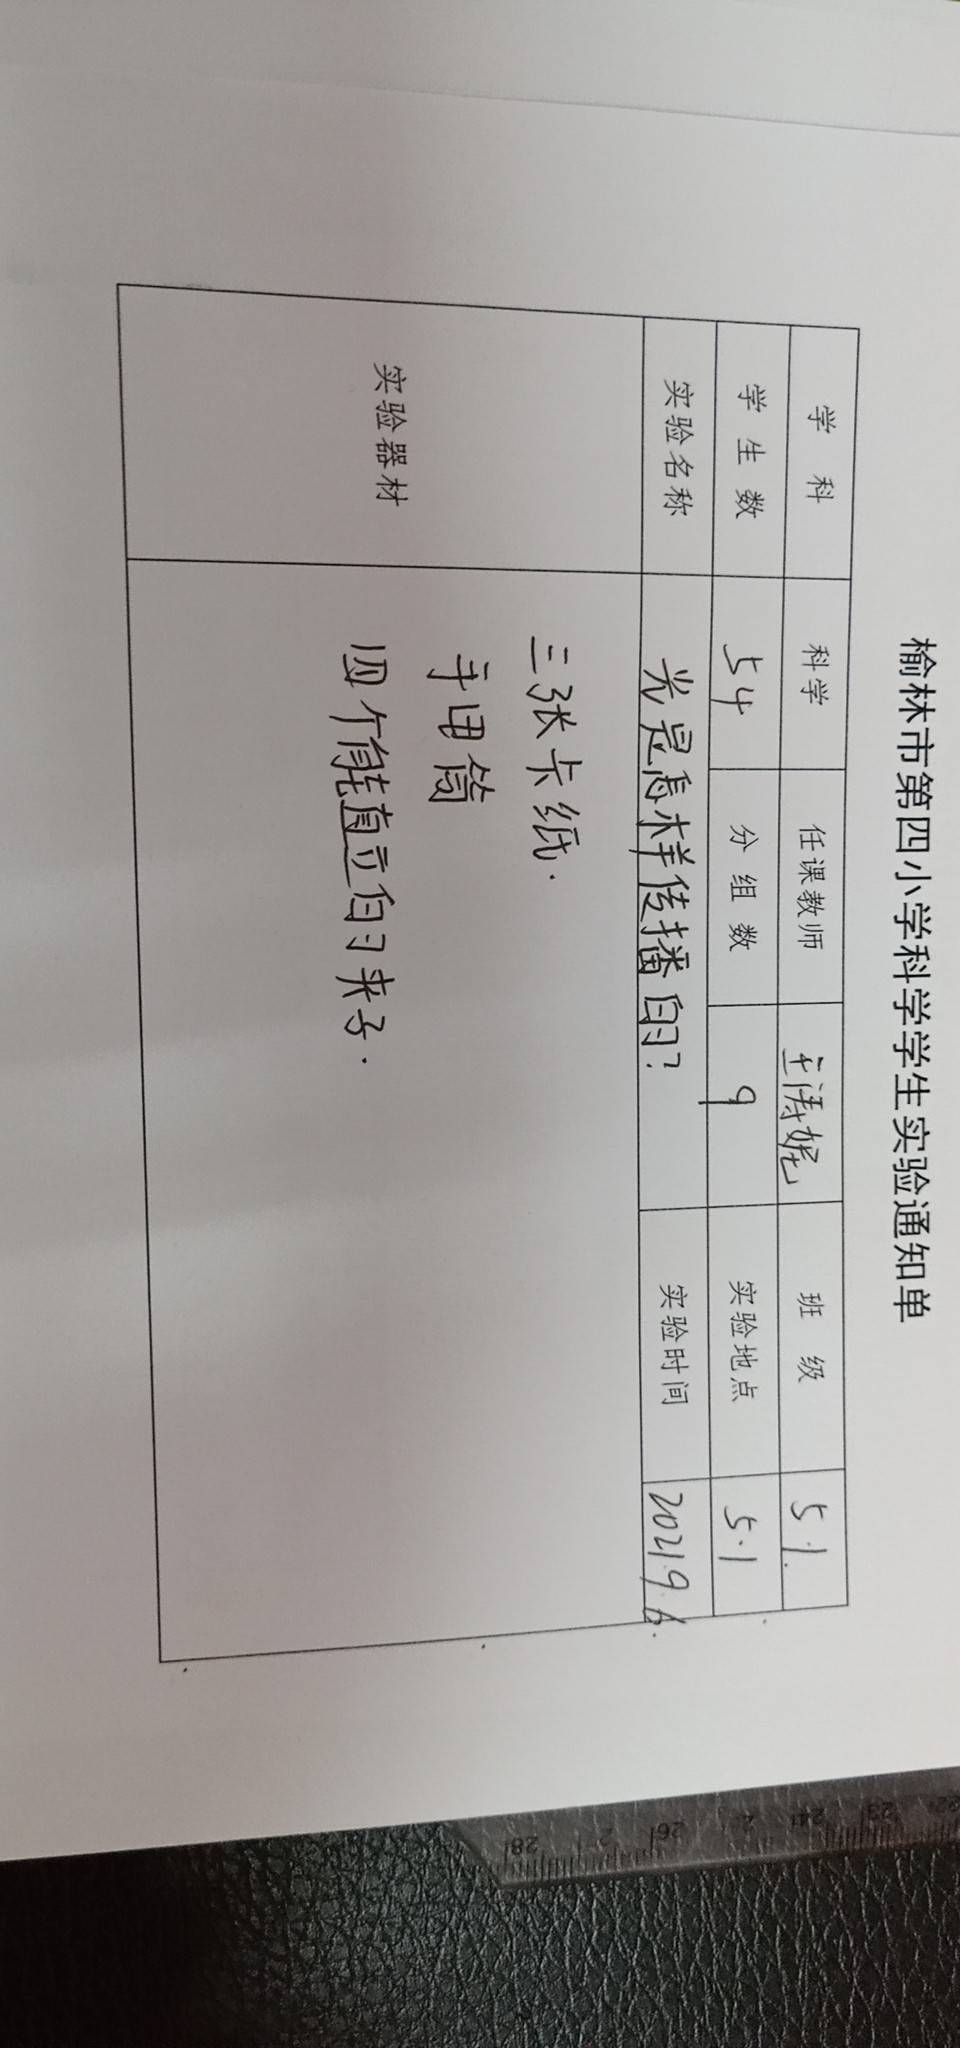 榆林市第四小学科学学生实验通知单
学 科 科学 任课教师 王涛妮 班 级 5.1.
学 生 数 54 分 组 数 9 实验地点 5.1
实验名称 光是怎样传播的? 实验时间 2021.9.6.
实验器材
三张卡纸.
手电筒
四个能直立的夹子.
22 23 24 26 28